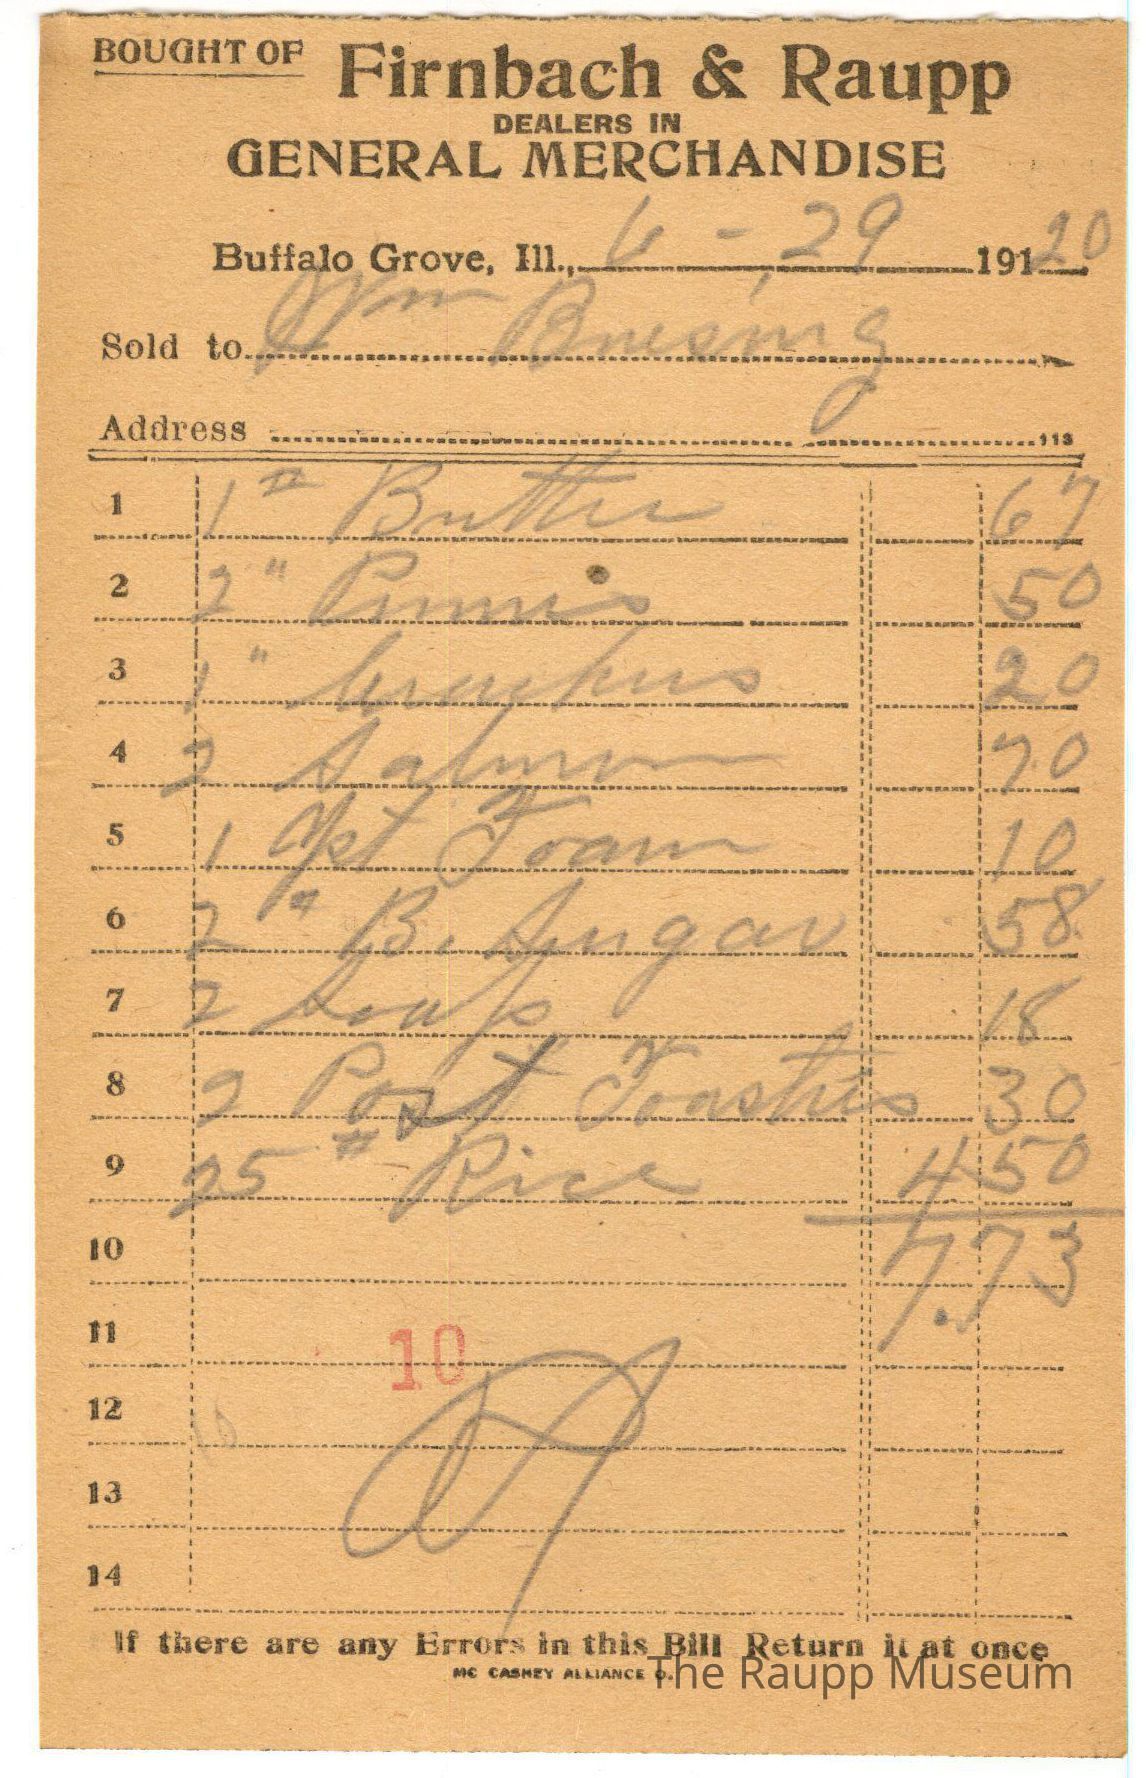 BOUGHT OF Firnbach & Raupp
DEALERS IN
GENERAL MERCHANDISE
Buffalo Grove, Ill., 6 - 29 191 20
Sold to Wm Busing
Address 113
1 1 # Butter 67
2 2 " Prunes 50
3 1 " Crackers 20
4 2 Salmon 70
5 1 Yst Foam 10
6 2 # B. Sugar 58
7 2 Soap 18
8 2 Post Toasties 30
9 25 # Rice 4 50
10 7.73
11
10
12
13
14
If there are any Errors in this Bill Return it at once
MC CASKEY ALLIANCE O.
The Raupp Museum